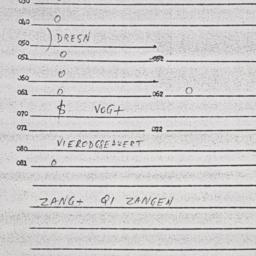 040 0
050 ) DRESN
051 0 052
060 0
061 0 062 0
070 $ VOG+
071 072
080
081 0
ZANG+ QI ZANGEN